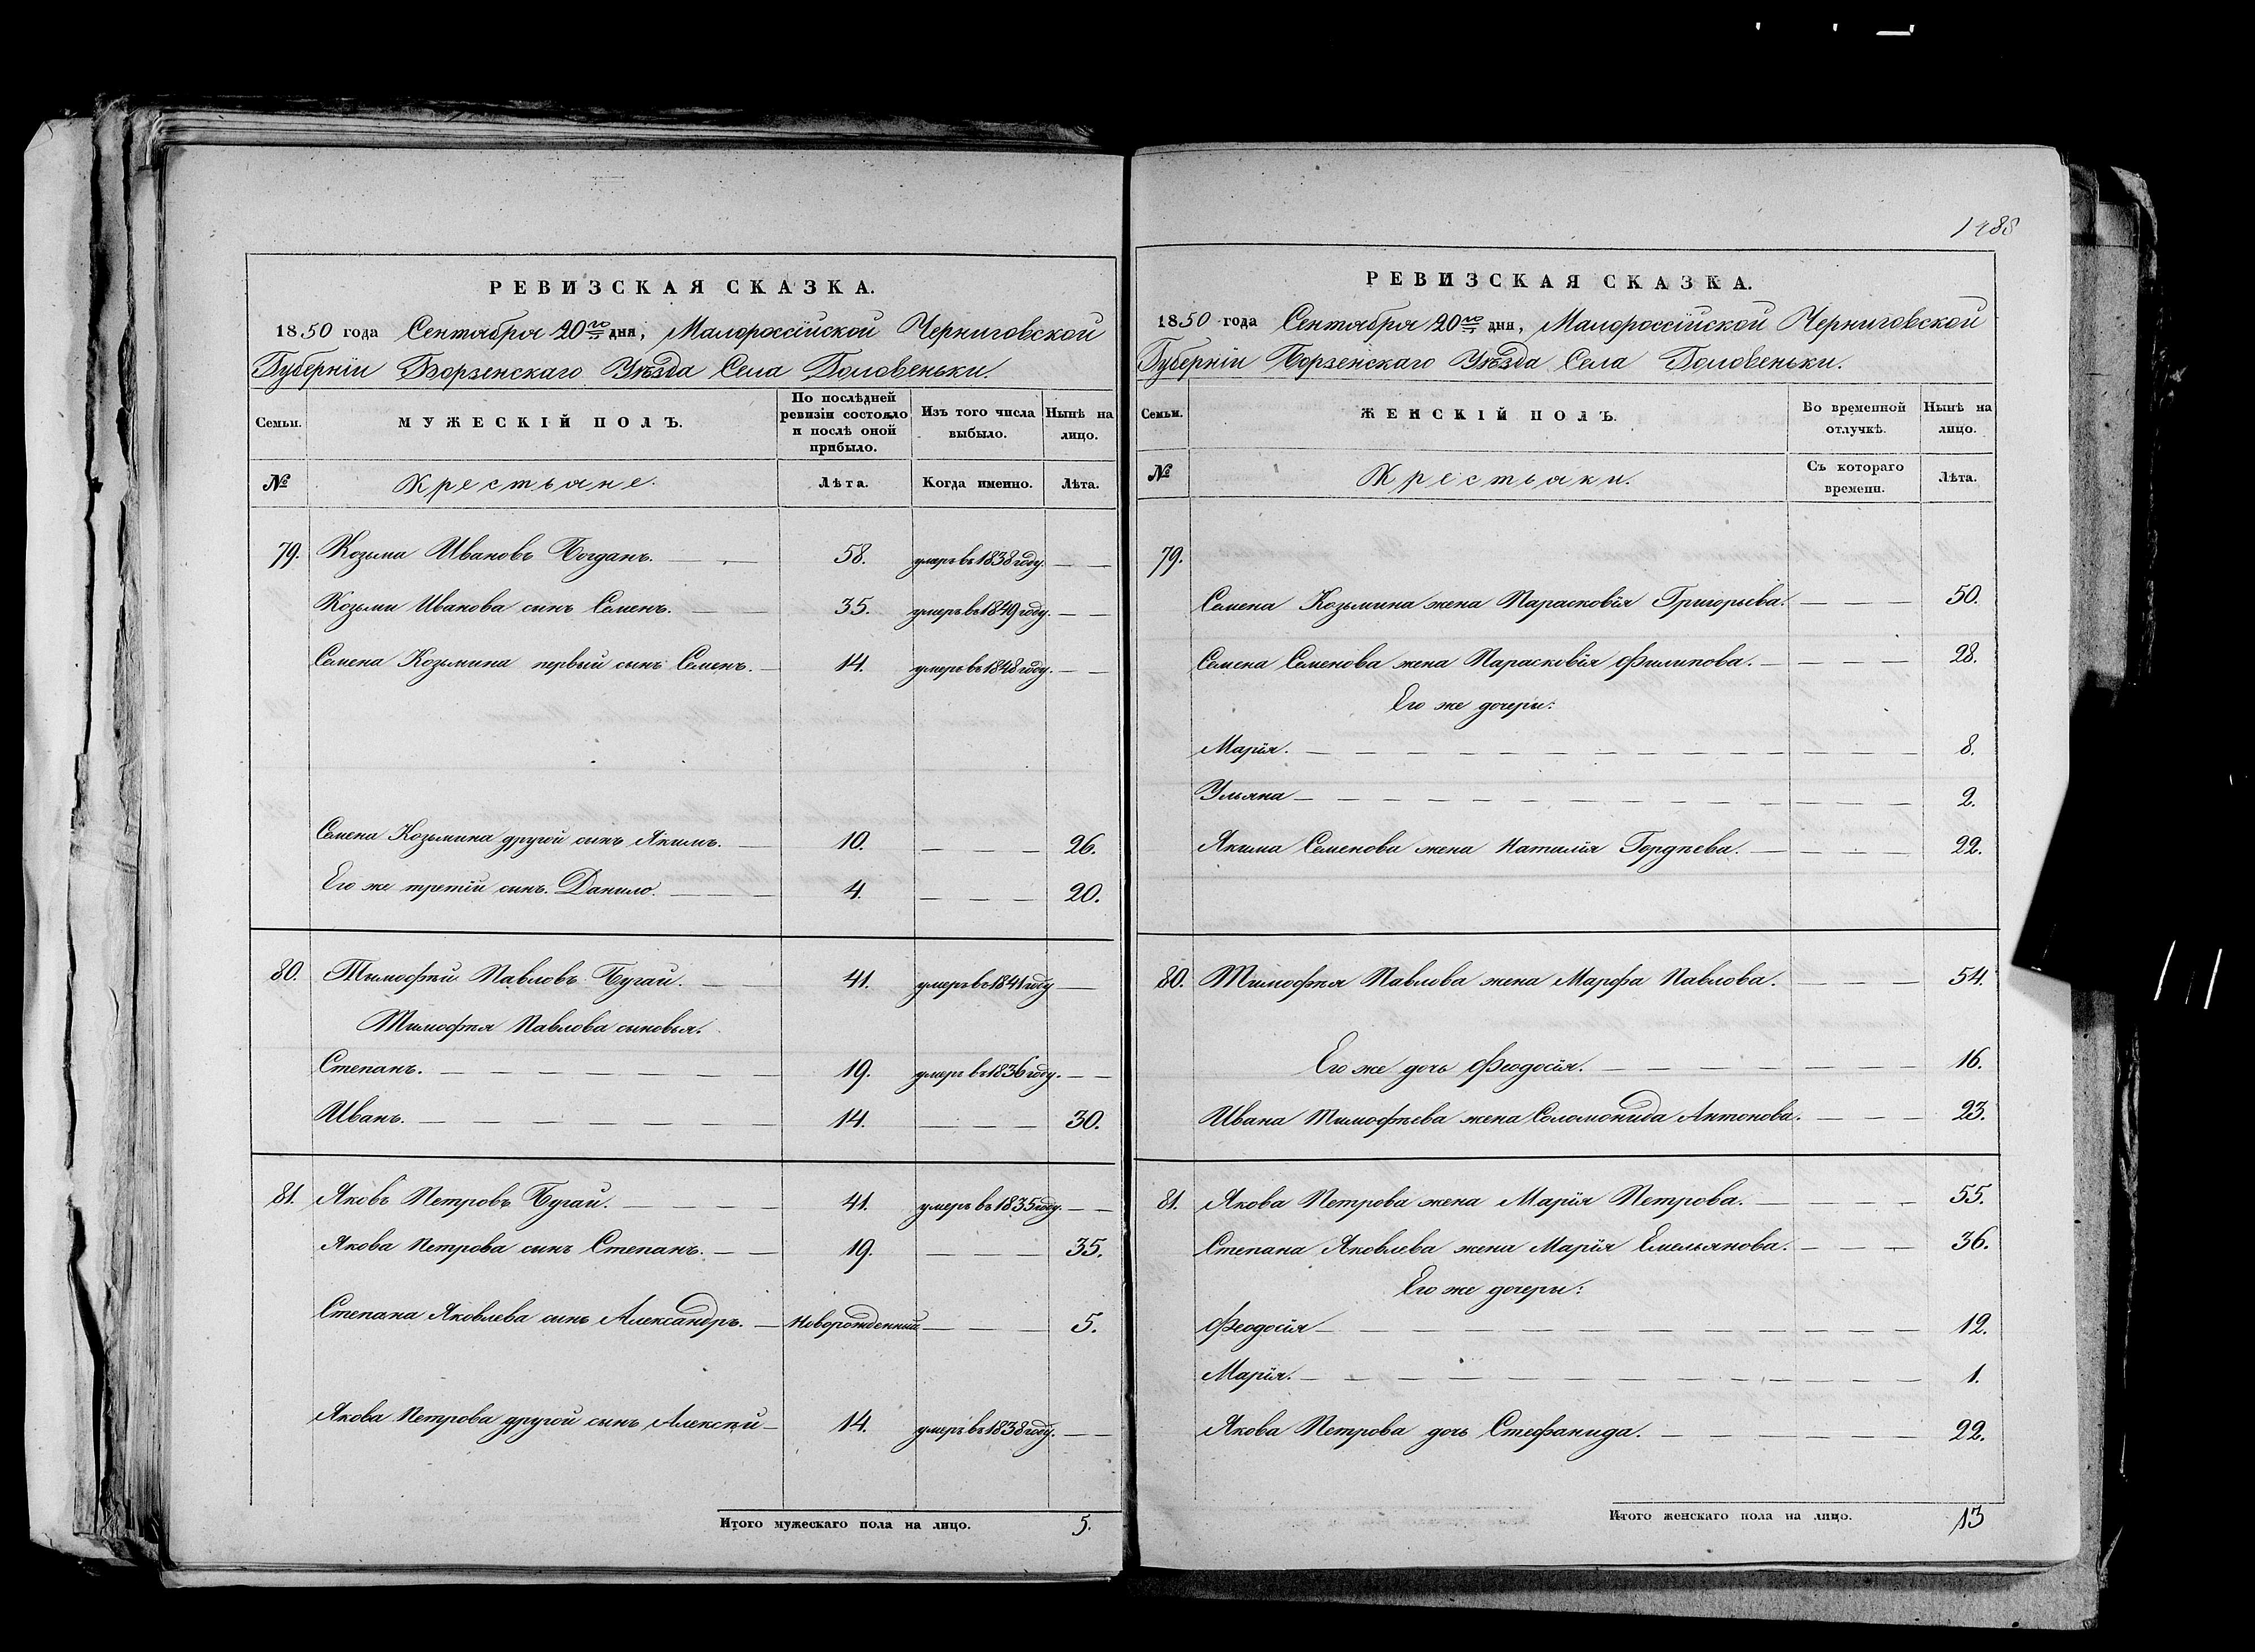 1488
РЕВИЗСКАЯ СКАЗКА.
1850 года Сентября 20го дня, Малороссійской Черниговской
Губерніи Борзенскаго Уѣзда Села Головеньки.
Семьи.
МУЖЕСКІЙ ПОЛЪ.
По послѣдней ревизіи состояло и послѣ оной прибыло.
Изъ того числа выбыло.
Нынѣ на лицо.
№
Крестьяне.
Лѣта.
Когда именно.
Лѣта.
79. Козьма Ивановъ Богданъ. 58. умеръ въ 1838 году.
Козьмы Иванова сынъ Семенъ. 35. умеръ въ 1849 году.
Семена Козьмина первый сынъ Семенъ. 14. умеръ въ 1848 году.
Семена Козьмина другой сынъ Якимъ. 10. 26.
Его же третій сынъ. Данило. 4. 20.
80. Тимофѣй Павловъ Бугай. 41. умеръ въ 1841 году
Тимофѣя Павлова сыновья.
Степанъ. 19. умеръ въ 1836 году.
Иванъ. 14. 30.
81. Яковъ Петровъ Бугай. 41. умеръ въ 1835 году.
Якова Петрова сынъ Степанъ. 19. 35.
Степана Яковлева сынъ Александръ. Новорожденный 5.
Якова Петрова другой сынъ Алексѣй 14. умеръ въ 1838 году.
Итого мужескаго пола на лицо. 5.
РЕВИЗСКАЯ СКАЗКА.
1850 года Сентября 20го дня, Малороссійской Черниговской
Губерніи Борзенскаго Уѣзда Села Головеньки.
Семьи.
ЖЕНСКІЙ ПОЛЪ.
Во временной отлучкѣ.
Нынѣ на лицо.
№
Крестьяки.
Съ котораго времени.
Лѣта.
79.
Семена Козьмина жена Парасковія Григорьева. 50.
Семена Семенова жена Парасковія Филипова. 28.
Его же дочери:
Марія. 8.
Ульяна 2.
Якима Семенова жена Наталія Гордѣева. 22.
80. Тимофѣя Павлова жена Марфа Павлова. 54.
Его же дочь Феодосія. 16.
Ивана Тимофѣева жена Соломонида Антонова. 23.
81. Якова Петрова жена Марія Петрова. 55.
Степана Яковлева жена Марія Емельянова. 36.
Его же дочери:
Феодосія 12.
Марія. 1.
Якова Петрова дочь Стефанида. 22.
Итого женскаго пола на лицо. 13